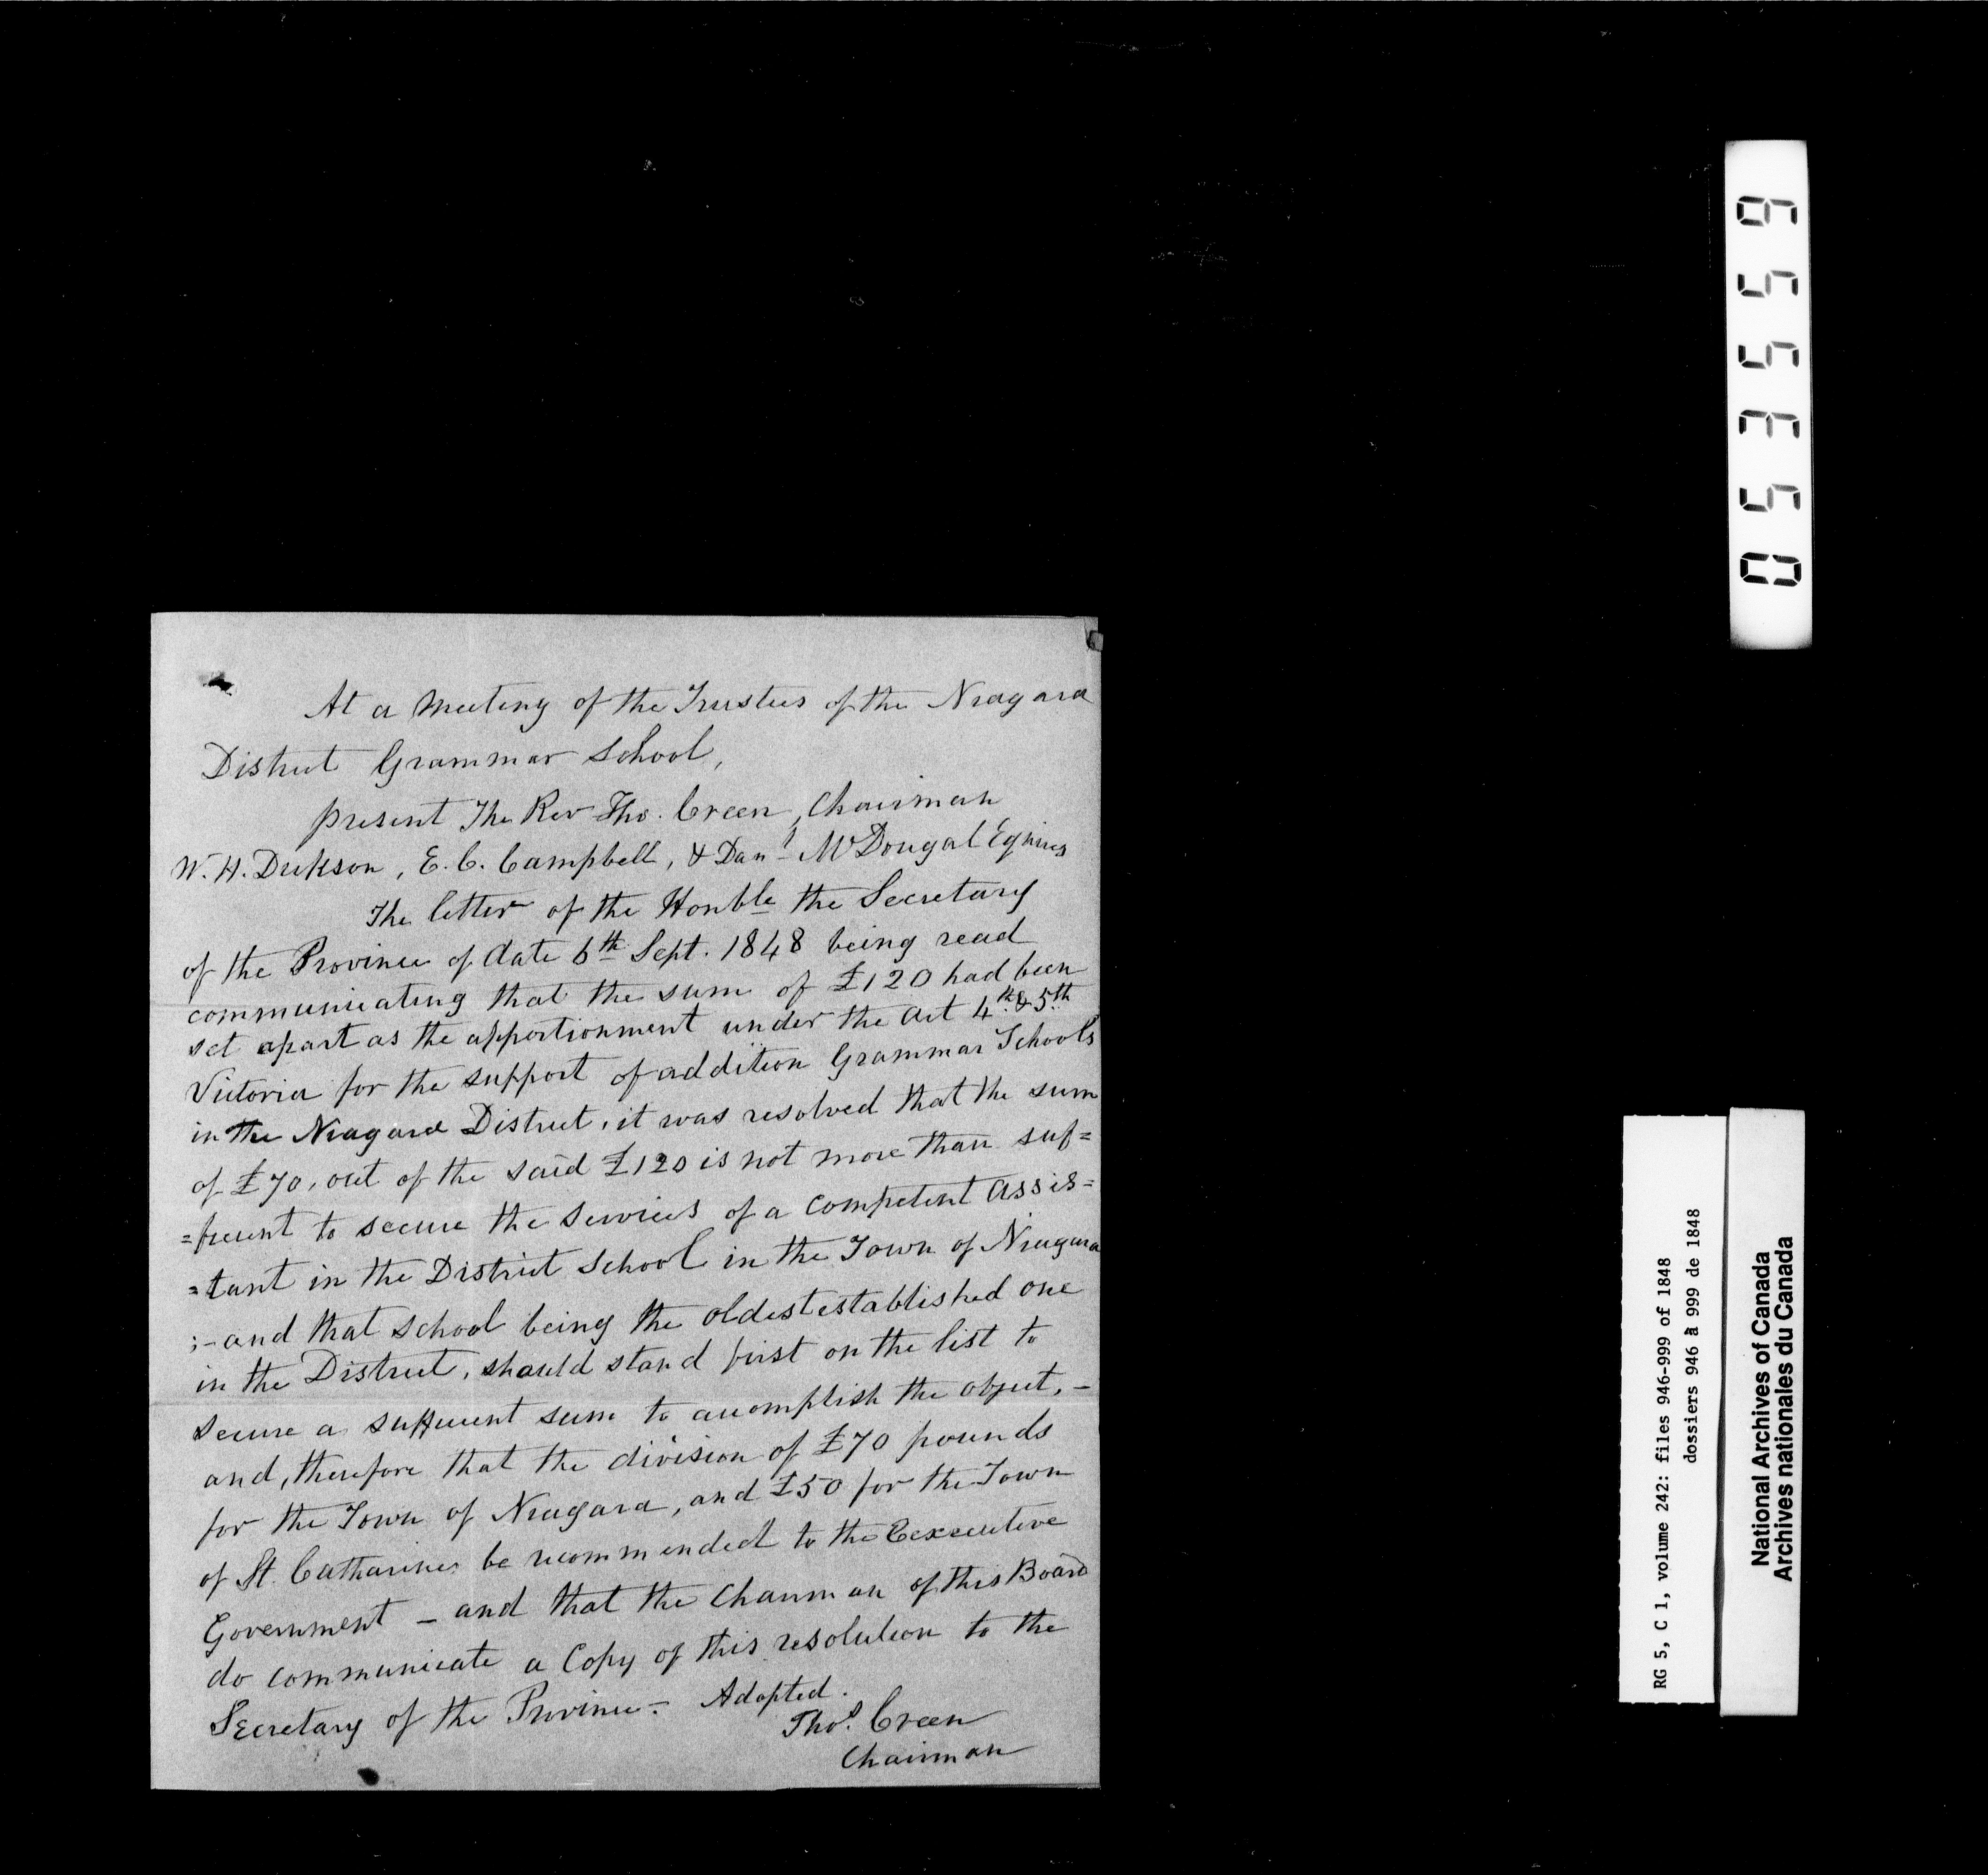 At a Meeting of the Trustees of the Niagara
District Grammar School,
present The Rev Tho. Creen, Chairman
W. H. Dickson, E. C. Campbell, & Danl McDougal Esquires
The letter of the Honble the Secretary
of the Province of date 6th Sept. 1848 being read
communicating that the sum of £120 had been
set apart as the apportionment under the Act 4th & 5th
Victoria for the support of addition Grammar Schools
in the Niagara District, it was resolved that the sum
of £70, out of the said £120 is not more than suf=
=ficient to secure the services of a competent Assis=
=tant in the District School in the Town of Niagara
;- and that school being the oldest established one
in the District, should stand first on the list to
secure a sufficient sum to accomplish the object, -
and, therefore that the division of £70 pounds
for the Town of Niagara, and £50 for the Town
of St. Catharines be recommended to the Eexecutive
Government - and that the Chairman of this Board
do communicate a Copy of this resolution to the
Secretary of the Province - Adopted.
Thos. Creen
Chairman
053559
RG 5, C 1, volume 242: files 946-999 of 1848
dossiers 946 à 999 de 1848
National Archives of Canada
Archives nationales du Canada